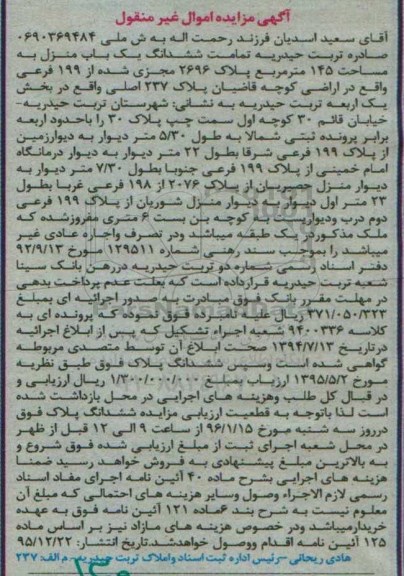 آگهی مزایده اموال غیر منقول
آقای سعید اسدیان فرزند رحمت اله به ش ملی ۰۶۹۰۳۶۹۴۸۴
صادره تربت حیدریه تمامت ششدانگ یک باب منزل به
مساحت ۱۴۵ مترمربع پلاک ۲۶۹۶ مجزی شده از ۱۹۹ فرعی
واقع در اراضی کوچه قاضیان پلاک ۲۳۷ اصلی واقع در بخش
یک اربعه تربت حیدریه به نشانی: شهرستان تربت حیدریه-
خیابان قائم ۳۰ کوچه اول سمت چپ پلاک ۳۰ را باحدود اربعه
برابر پرونده ثبتی شمالا به طول ۵/۳۰ متر دیوار به دیوارزمین
از پلاک ۱۹۹ فرعی شرقا بطول ۲۲ متر دیوار به دیوار درمانگاه
امام خمینی از پلاک ۱۹۹ فرعی جنوبا بطول ۷/۳۰ متر دیوار به
دیوار منزل حصیریان از پلاک ۲۰۷۶ از ۱۹۸ فرعی غربا بطول
۲۳ متر اول دیوار به دیوار منزل شوریان از پلاک ۱۹۹ فرعی
دوم درب ودیواریست به کوچه بن بست ۶ متری مفروزشده که
ملک مذکوردر یک طبقه میباشد ودر تصرف واجاره عادی غیر
میباشد را بموجب سند رهنی شماره ۱۲۹۵۱۱ مورخ ۹۲/۹/۱۳
دفتر اسناد رسمی شماره دو تربت حیدریه دررهن بانک سینا
شعبه تربت حیدریه قرارداده است که بعلت عدم پرداخت بدهی
در مهلت مقرر بانک فوق مبادرت به صدور اجرائیه ای بمبلغ
۳۷۱/۰۵۰/۳۲۳ ریال علیه نامبرده فوق نموده که پرونده ای به
کلاسه ۹۴۰۰۳۳۶ شعبه اجراء تشکیل که پس از ابلاغ اجرائیه
درتاریخ ۱۳۹۴/۷/۱۳ صحت ابلاغ آن توسط متصدی مربوطه
گواهی شده است وسپس ششدانگ پلاک فوق طبق نظریه
مورخ ۱۳۹۵/۵/۲ ارزیاب بمبلغ ۱/۳۰۰/۰۰۰/۰۰۰ ریال ارزیابی و
در قبال کل طلب وهزینه های اجرایی در محل بازداشت شده
است لذا باتوجه به قطعیت ارزیابی مزایده ششدانگ پلاک فوق
درروز سه شنبه مورخ ۹۶/۱/۱۵ از ساعت ۹ الی ۱۲ قبل از ظهر
در محل شعبه اجرای ثبت از مبلغ ارزیابی شده فوق شروع و
به بالاترین مبلغ پیشنهادی به فروش خواهد رسید ضمنا
هزینه های اجرایی بشرح ماده ۴۰ آئین نامه اجرای مفاد اسناد
رسمی لازم الاجراء وصول وسایر هزینه های احتمالی که مبلغ آن
معلوم نیست به شرح بند ۶ماده ۱۲۱ آئین نامه فوق به عهده
خریدارمیباشد ودر خصوص هزینه های مازاد نیز بر اساس ماده
۱۲۵ آئین نامه اقدام ووصول خواهدشد.تاریخ انتشار: ۹۵/۱۲/۲۲
هادی ریحانی -رئیس اداره ثبت اسناد واملاک تربت حیدریه- م الف: ۲۳۷